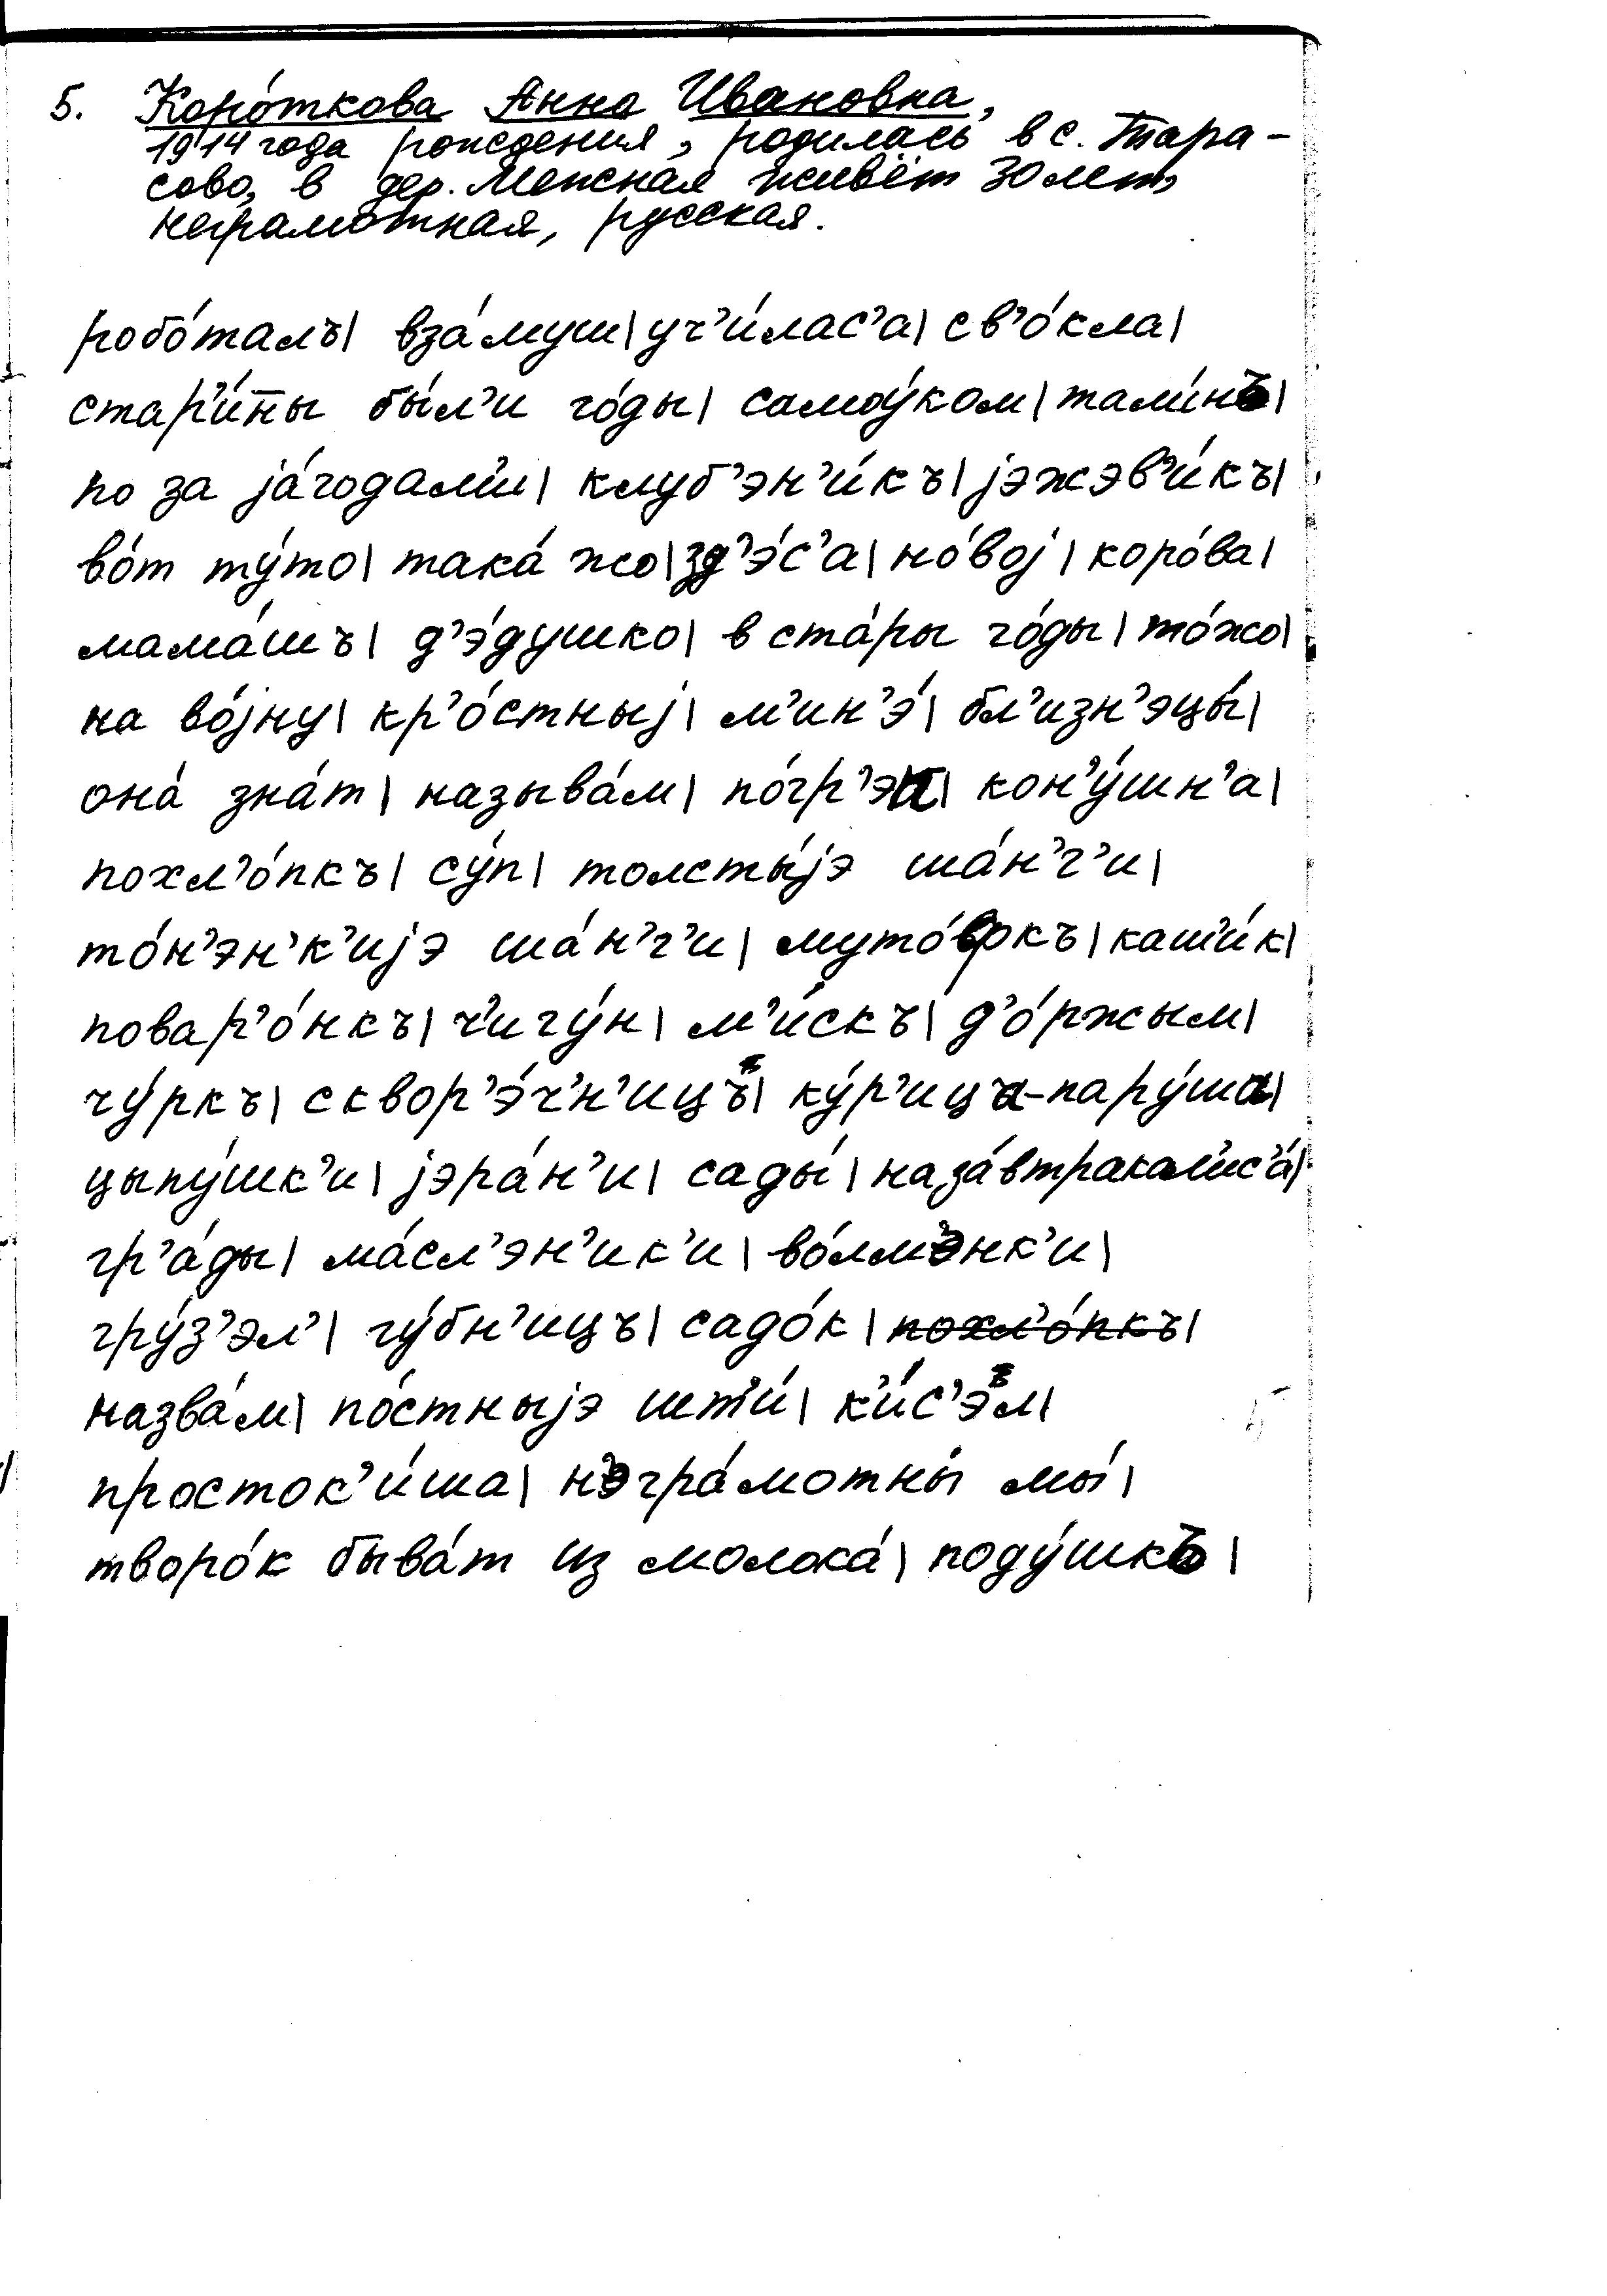 5. Коро́ткова Анна Ивановна,
1914 года рождения, родилась в с. Тара-
сово, в дер. Межная живёт 30 лет,
неграмотная, русская.
робо́талъ| вза́муш| уч’и́лас’а| св’о́кла|
стар’и́ны бы́л’и го́ды| самоу́ком| там’и́нъ|
по за jа́годам’и| клуб’эн’и́къ| jэжэв’и́къ|
во́т ту́то| така́ жо| зд’э́с’а| но́воj| коро́ва|
мама́шъ| д’э́душко| в ста́ры го́ды| то́жо|
на во́jну| кр’о́стныj| м’ин’э́| бл’изн’эцы́|
она́ зна́т| называ́м| по́гр’эп| кон’у́шн’а|
похл’о́пкъ| су́п| толсты́jэ ша́н’г’и|
то́н’эн’к’иjэ ша́н’г’и| муто́вкъ| каш’и́к|
повар’о́нкъ| ч’игу́н| м’и́скъ| д’о́ржым|
чу́ркъ| сквор’э́ч’н’ицъ| ку́р’ица-пару́ша|
цыпу́шк’и| jэра́н’и| сады́| наза́втракал’ис’а́|
гр’а́ды| ма́сл’эн’ик’и| во́лм’энк’и|
гру́з’эл’| гу́бн’ицъ| садо́к| похл’о́пкъ|
назва́м| по́стныjэ шт’и́| к’и́с’эл|
просток’и́ша| н’эгра́мотны мы́|
творо́к быва́т из молока́| поду́шкъ|